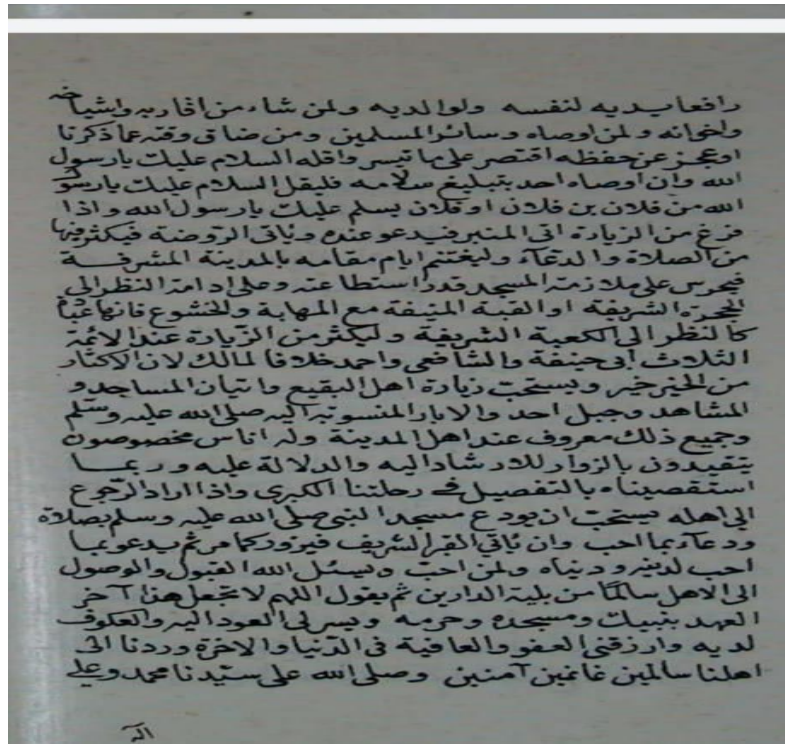 رافعا يديه لنفسه ولوالديه ولمن شاء من اقاربه واشياخه
واخوانه ولمن اوصاه وسائر المسلمين ومن ضاق وقته عما ذكرنا
اوعجز عن حفظه اقتصر على ما تيسر واقله السلام عليك يا رسول
الله وان اوصاه احد بتبليغ سلامه فليقل السلام عليك يا رسول
الله من فلان بن فلان او فلان يسلم عليك يا رسول الله واذا
فرغ من الزيارة اتى المنبر فيدعو عنده وياتى الروضة فيكثر فيها
من الصلاة والدعاء وليغتنم ايام مقامه بالمدينة المشرفة
فيحرص على ملازمة المسجد قدر استطاعته وعلى ادامة النظر الى
الحجرة الشريفة او القبة المنيفة مع المهابة والخشوع فانها عبادة
كالنظر الى الكعبة الشريفة وليكثر من الزيارة عند الائمة
الثلاث ابى حنيفة والشافعى واحمد خلافا لمالك لان الاكثار
من الخير خير ويستحب زيارة اهل البقيع واتيان المساجد و
المشاهد وجبل احد والابار المنسوبة اليه صلى الله عليه وسلم
وجميع ذلك معروف عند اهل المدينة وله اناس مخصوصون
يتقيدون بالزوار للارشاد اليه والدلالة عليه وربما
استقصيناه بالتفصيل فى رحلتنا الكبرى واذا اراد الرجوع
الى اهله يستحب ان يودع مسجد النبى صلى الله عليه وسلم بصلاة
ودعاء بما احب وان ياتى القبر الشريف فيزور كما مر ثم يدعو بما
احب لدينه ودنياه ولمن احب ويسئل الله القبول والوصول
الى الاهل سالما من بلية الدارين ثم يقول اللهم لا تجعل هذا آخر
العهد بنبيك ومسجده وحرمه ويسر لى العود اليه والعكوف
لديه وارزقنى العفو والعافية فى الدنيا والاخرة وردنا الى
اهلنا سالمين غانمين آمنين وصلى الله على سيدنا محمد وعلى
اله